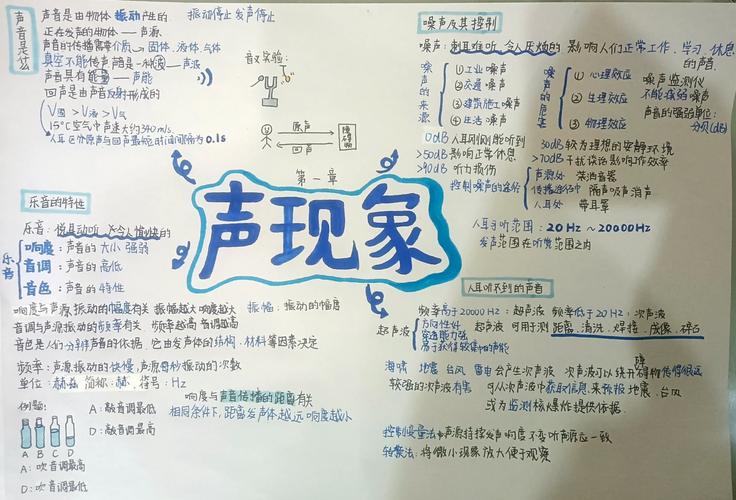 声音是什么
声音是由物体振动产生的 振动停止发声停止
正在发声的物体——声源
声音的传播需要介质 → 固体、液体、气体
真空不能传声 声音是一种波——声波
声音具有能量——声能
回声是由声音反射形成的
V固 > V液 > V气
15℃空气中声速大约340m/s
人耳区分原声与回声最短时间间隔为0.1s
音叉实验:
原声
回声
障碍物
第一章
声现象
噪声及其控制
噪声: 刺耳难听、令人厌烦的 影响人们正常工作、学习、休息的声音
噪声的来源
①工业噪声
②交通噪声
③建筑施工噪声
④生活噪声
噪声的危害
① 心理效应
② 生理效应
③ 物理效应
噪声监测仪
不能减弱噪声
声音的强弱单位:
分贝(dB)
0dB 人耳刚刚能听到 30dB较为理想的安静环境
>50dB影响正常休息 >70dB干扰谈话影响工作效率
>90dB 听力损伤
控制噪声的途径
声源处 装消音器
传播途径中 隔声吸声消声
人耳处 带耳罩
人耳听觉范围: 20Hz ~ 20000Hz
发声范围在听觉范围之内
乐音的特性
乐音: 悦耳动听、令人愉快的
乐音
响度: 声音的大小 强弱
音调: 声音的高低
音色: 声音的特性
响度与声源振动的幅度有关 振幅越大响度越大 振幅: 振动的幅度
音调与声源振动的频率有关 频率越高音调越高
音色是人们分辨声音的依据, 它由发声体的结构、材料等因素决定
频率: 声源振动的快慢, 声源每秒振动的次数
单位: 赫兹 简称: 赫 符号: Hz
例题:
A B C D
A: 敲音调最低
D: 敲音调最高
A: 吹音调最高
D: 吹音调最低
响度与声音传播的距离有关
相同条件下, 距离发声体越远响度越小
人耳听不到的声音
频率高于20000Hz: 超声波 频率低于20Hz: 次声波
超声波
方向性好
穿透能力强
易于获得较集中的声能
超声波 可用于测距离、清洗、焊接、成像、碎石
海啸 地震 台风 雷电 会产生次声波 次声波可以绕开障碍物传得很远
较强的次声波有害 可从次声波中获取信息, 来预报地震、台风
或为监测核爆炸提供依据.
控制变量法 声源持续发声响度不变听声源应一致
转换法: 将微小现象放大便于观察